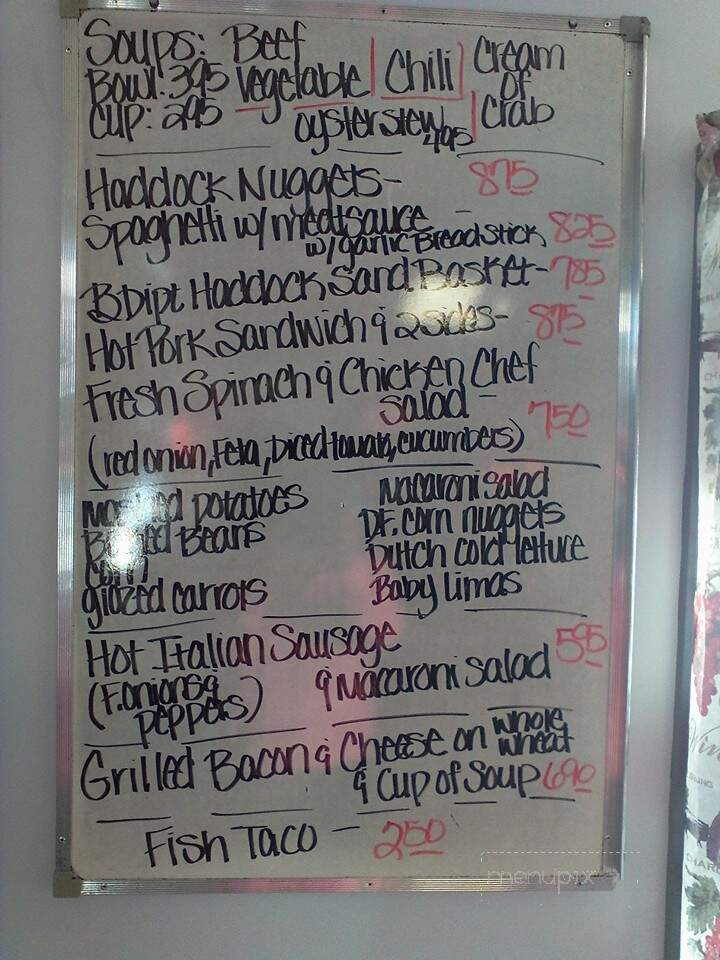 Soups: Beef
Bowl: 395 vegetable | Chili | Cream of Crab
Cup: 295 oyster stew 495
Haddock Nuggets- 875
Spaghetti w/ meatsauce -
w/garlic Bread stick 825
BDipt Haddock Sand Basket- 785
Hot Pork Sandwich & 2 sides- 875
Fresh Spinach & Chicken Chef
Salad - 750
(red onion, Feta, Diced tomato, cucumbers)
mashed potatoes
Baked Beans
corn
glazed carrots
Macaroni Salad
D.F. corn nuggets
Dutch cold lettuce
Baby Limas
Hot Italian Sausage 595
(F. onions & peppers) & Macaroni Salad
Grilled Bacon & Cheese on whole wheat
& Cup of Soup 690
Fish Taco - 250
menupix